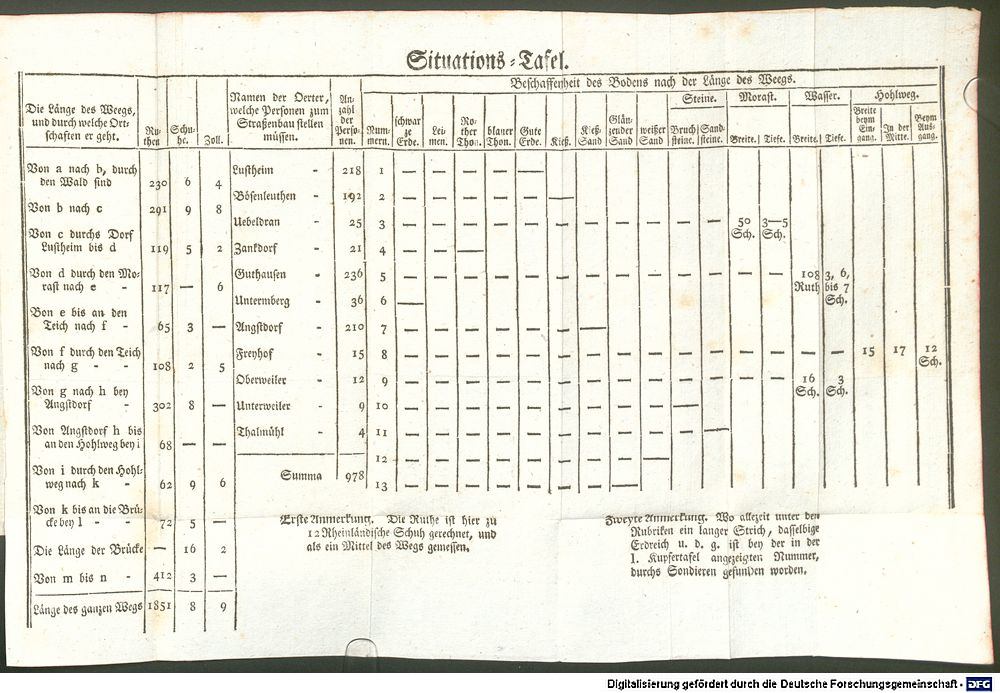 Situations-Tafel.
Die Länge des Weegs, und durch welche Ortschaften er geht. | Ruthen | Schuhe. | Zoll.
Von a nach b, durch
den Wald sind 230 6 4
Von b nach c 291 9 8
Von c durchs Dorf
Lustheim bis d 119 5 2
Von d durch den Mo-
rast nach e - 117 — 6
Von e bis an den
Teich nach f - 65 3 —
Von f durch den Teich
nach g - - 108 2 5
Von g nach h bey
Angstdorf - 302 8 —
Von Angstdorf h bis
an den Hohlweg bey i 68 — —
Von i durch den Hohl-
weg nach k - 62 9 6
Von k bis an die Brü-
cke bey l - - 72 5 —
Die Länge der Brücke — 16 2
Von m bis n - 412 3 —
Länge des ganzen Wegs 1851 8 9
Namen der Oerter,
welche Personen zum
Straßenbau stellen
müssen.
An-
zahl
der
Perso-
nen.
Lustheim - 218
Bösenleuthen - 192
Uebeldran - 25
Zankdorf - 24
Guthausen - 236
Untermberg - 36
Angstdorf - 210
Freyhof - 15
Oberweiler - 12
Unterweiler - 9
Thalmühl - 4
Summa 978
Beschaffenheit des Bodens nach der Länge des Weegs.
Steine. Morast. Wasser. Hohlweg.
Num-
mern.
schwar
ze
Erde.
Lei-
men.
Ro-
ther
Thon.
blauer
Thon.
Gute
Erde.
Kieß.
Kieß-
Sand
Glän-
zender
Sand
weißer
Sand
Bruch
steine.
Sand-
steine.
Breite. Tiefe. Breite. Tiefe.
Breite
beym
Ein-
gang.
In der
Mitte.
Beym
Aus-
gang.
1 — — — — —
2 — — — — — —
3 — — — — — — — — — — — 50 Sch. 3—5 Sch.
4 — — —
5 — — — — — — — — — — — — — 108 Ruth 3, 6, bis 7 Sch.
6 —
7 — — — — — — —
8 — — — — — — — — — — — — — — — 15 17 12 Sch.
9 — — — — — — — — — — — — — 16 Sch. 3 Sch.
10 — — — — — — — — — —
11 — — — — — — — — — — —
12 — — — — — — — — —
13 — — — — — — — —
Erste Anmerkung. Die Ruthe ist hier zu
12 Rheinländische Schuh gerechnet, und
als ein Mittel des Wegs gemessen.
Zweyte Anmerkung. Wo allezeit unter den
Rubriken ein langer Strich, dasselbige
Erdreich u. d. g. ist bey der in der
I. Kupfertafel angezeigten Nummer,
durchs Sondieren gefunden worden.
Digitalisierung gefördert durch die Deutsche Forschungsgemeinschaft - DFG